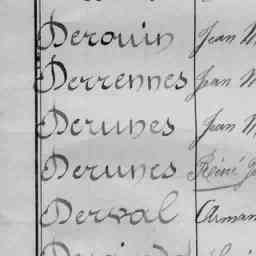 Derouin Jean M
Derrennes Jean M
Derunes Jean M
Derunes Réné
Derval Arman